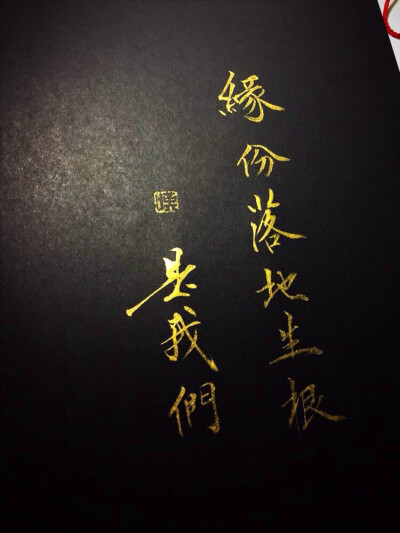 緣份落地生根
是我們